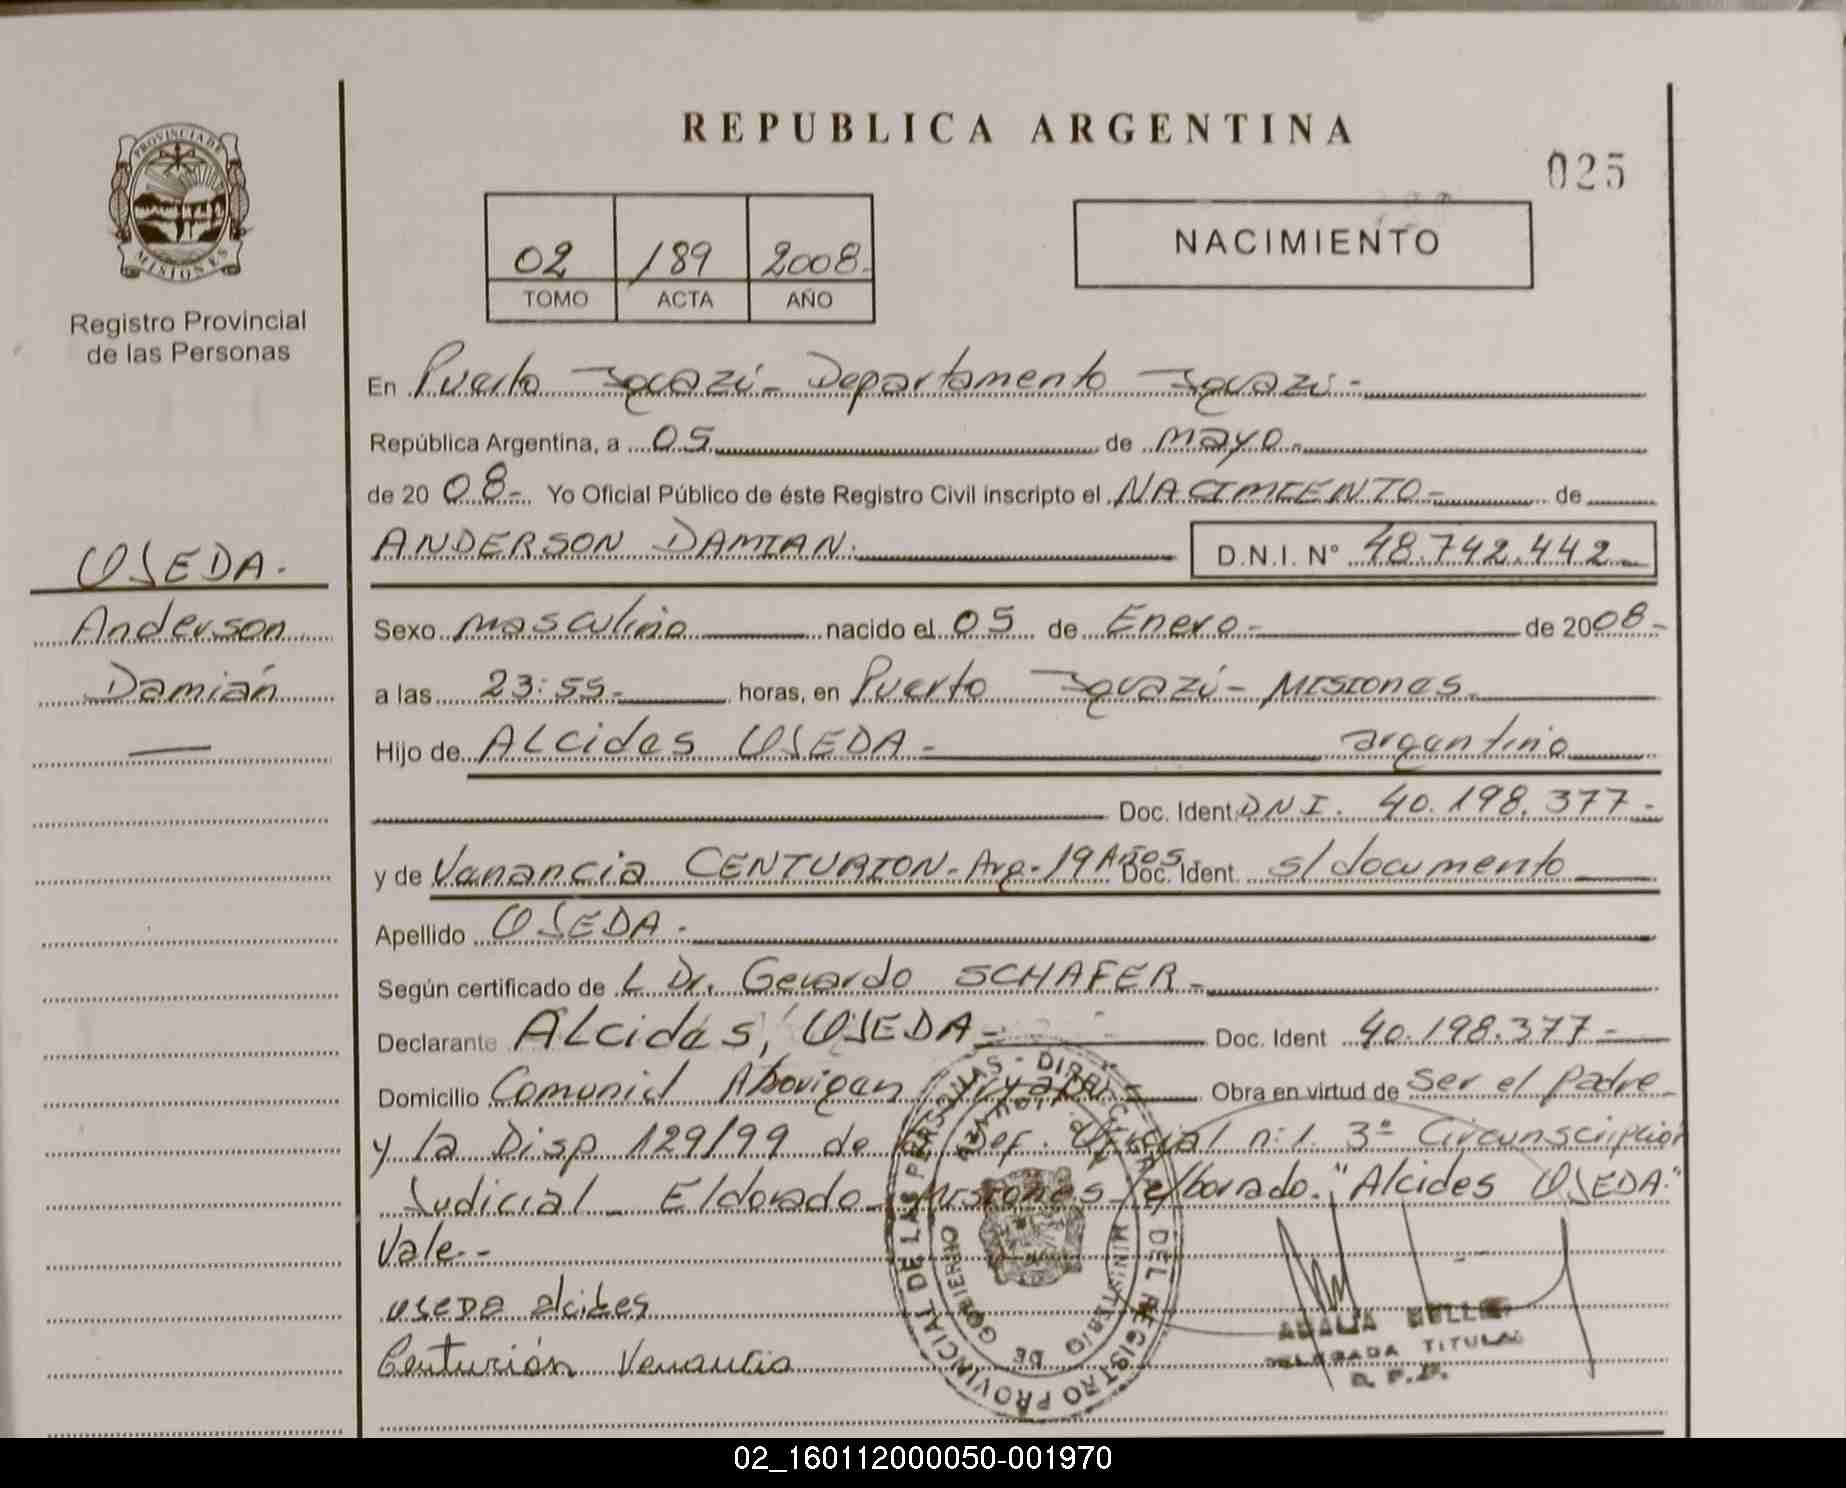 REPUBLICA ARGENTINA
025
PROVINCIA DE
MISIONES
Registro Provincial
de las Personas
02 189 2008-
TOMO ACTA AÑO
NACIMIENTO
En Puerto Iguazú- Departamento Iguazú-
República Argentina, a 05 de mayo-
de 20 08- Yo Oficial Público de éste Registro Civil inscripto el NACIMIENTO- de
ANDERSON DAMIAN. D.N.I. N° 48.742.442-
USEDA.
Anderson
Damián
Sexo masculino nacido el 05 de Enero- de 2008-
a las 23:55- horas, en Puerto Iguazú- Misiones
Hijo de Alcides USEDA- argentino
Doc. Ident. DNI. 40.198.377-
y de Vanancia CENTURION- Arg- 19 Años Doc. Ident. s/documento
Apellido USEDA-
Según certificado de L Dr. Gerardo SCHAFER-
Declarante Alcides, USEDA- Doc. Ident 40.198.377-
Domicilio Comunid Aborigen Obra en virtud de Ser el Padre
y la Disp 129/99 de Def. Oficial n:1. 3ª Circunscripcion
Judicial - Eldorado- Misiones e/borrado. "Alcides USEDA."
Vale-
USEDA alcides
Centurión Venancia
DIRECCION DEL REGISTRO PROVINCIAL DE LAS PERSONAS
MINISTERIO DE GOBIERNO
DELEGADA TITULAR
R. P. P.
02_160112000050-001970